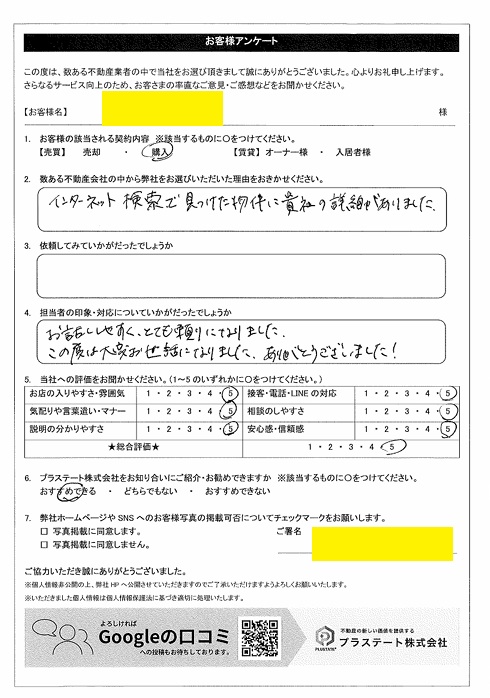 お客様アンケート
この度は、数ある不動産業者の中で当社をお選び頂きまして誠にありがとうございました。心よりお礼申し上げます。
さらなるサービス向上のため、お客さまの率直なご意見・ご感想などをお聞かせください。
【お客様名】 様
1. お客様の該当される契約内容 ※該当するものに○をつけてください。
【売買】 売却 ・ 購入 【賃貸】 オーナー様 ・ 入居者様
2. 数ある不動産会社の中から弊社をお選びいただいた理由をおきかせください。
インターネット検索で見つけた物件に貴社の詳細がありました。
3. 依頼してみていかがだったでしょうか
4. 担当者の印象・対応についていかがだったでしょうか
お話ししやすく、とても頼りになりました。
この度は大変お世話になりました。ありがとうございました!
5. 当社への評価をお聞かせください。(1～5のいずれかに○をつけてください。)
お店の入りやすさ・雰囲気 1 ・ 2 ・ 3 ・ 4 ・ 5 接客・電話・LINE の対応 1 ・ 2 ・ 3 ・ 4 ・ 5
気配りや言葉遣い・マナー 1 ・ 2 ・ 3 ・ 4 ・ 5 相談のしやすさ 1 ・ 2 ・ 3 ・ 4 ・ 5
説明の分かりやすさ 1 ・ 2 ・ 3 ・ 4 ・ 5 安心感・信頼感 1 ・ 2 ・ 3 ・ 4 ・ 5
★総合評価★ 1 ・ 2 ・ 3 ・ 4 ・ 5
6. プラステート株式会社をお知り合いにご紹介・お勧めできますか ※該当するものに○をつけてください。
おすすめできる ・ どちらでもない ・ おすすめできない
7. 弊社ホームページや SNS へのお客様写真の掲載可否についてチェックマークをお願いします。
□ 写真掲載に同意します。 ご署名
□ 写真掲載に同意しません。
ご協力いただき誠にありがとうございました。
※個人情報非公開の上、弊社 HP へ公開させていただきますのでご了承いただけますようよろしくお願いいたします。
※いただきました個人情報は個人情報保護法に基づき適切に処理いたします。
よろしければ
Googleの口コミ
への投稿もお待ちしております。
PLUSTATE
不動産の新しい価値を提供する
プラステート株式会社